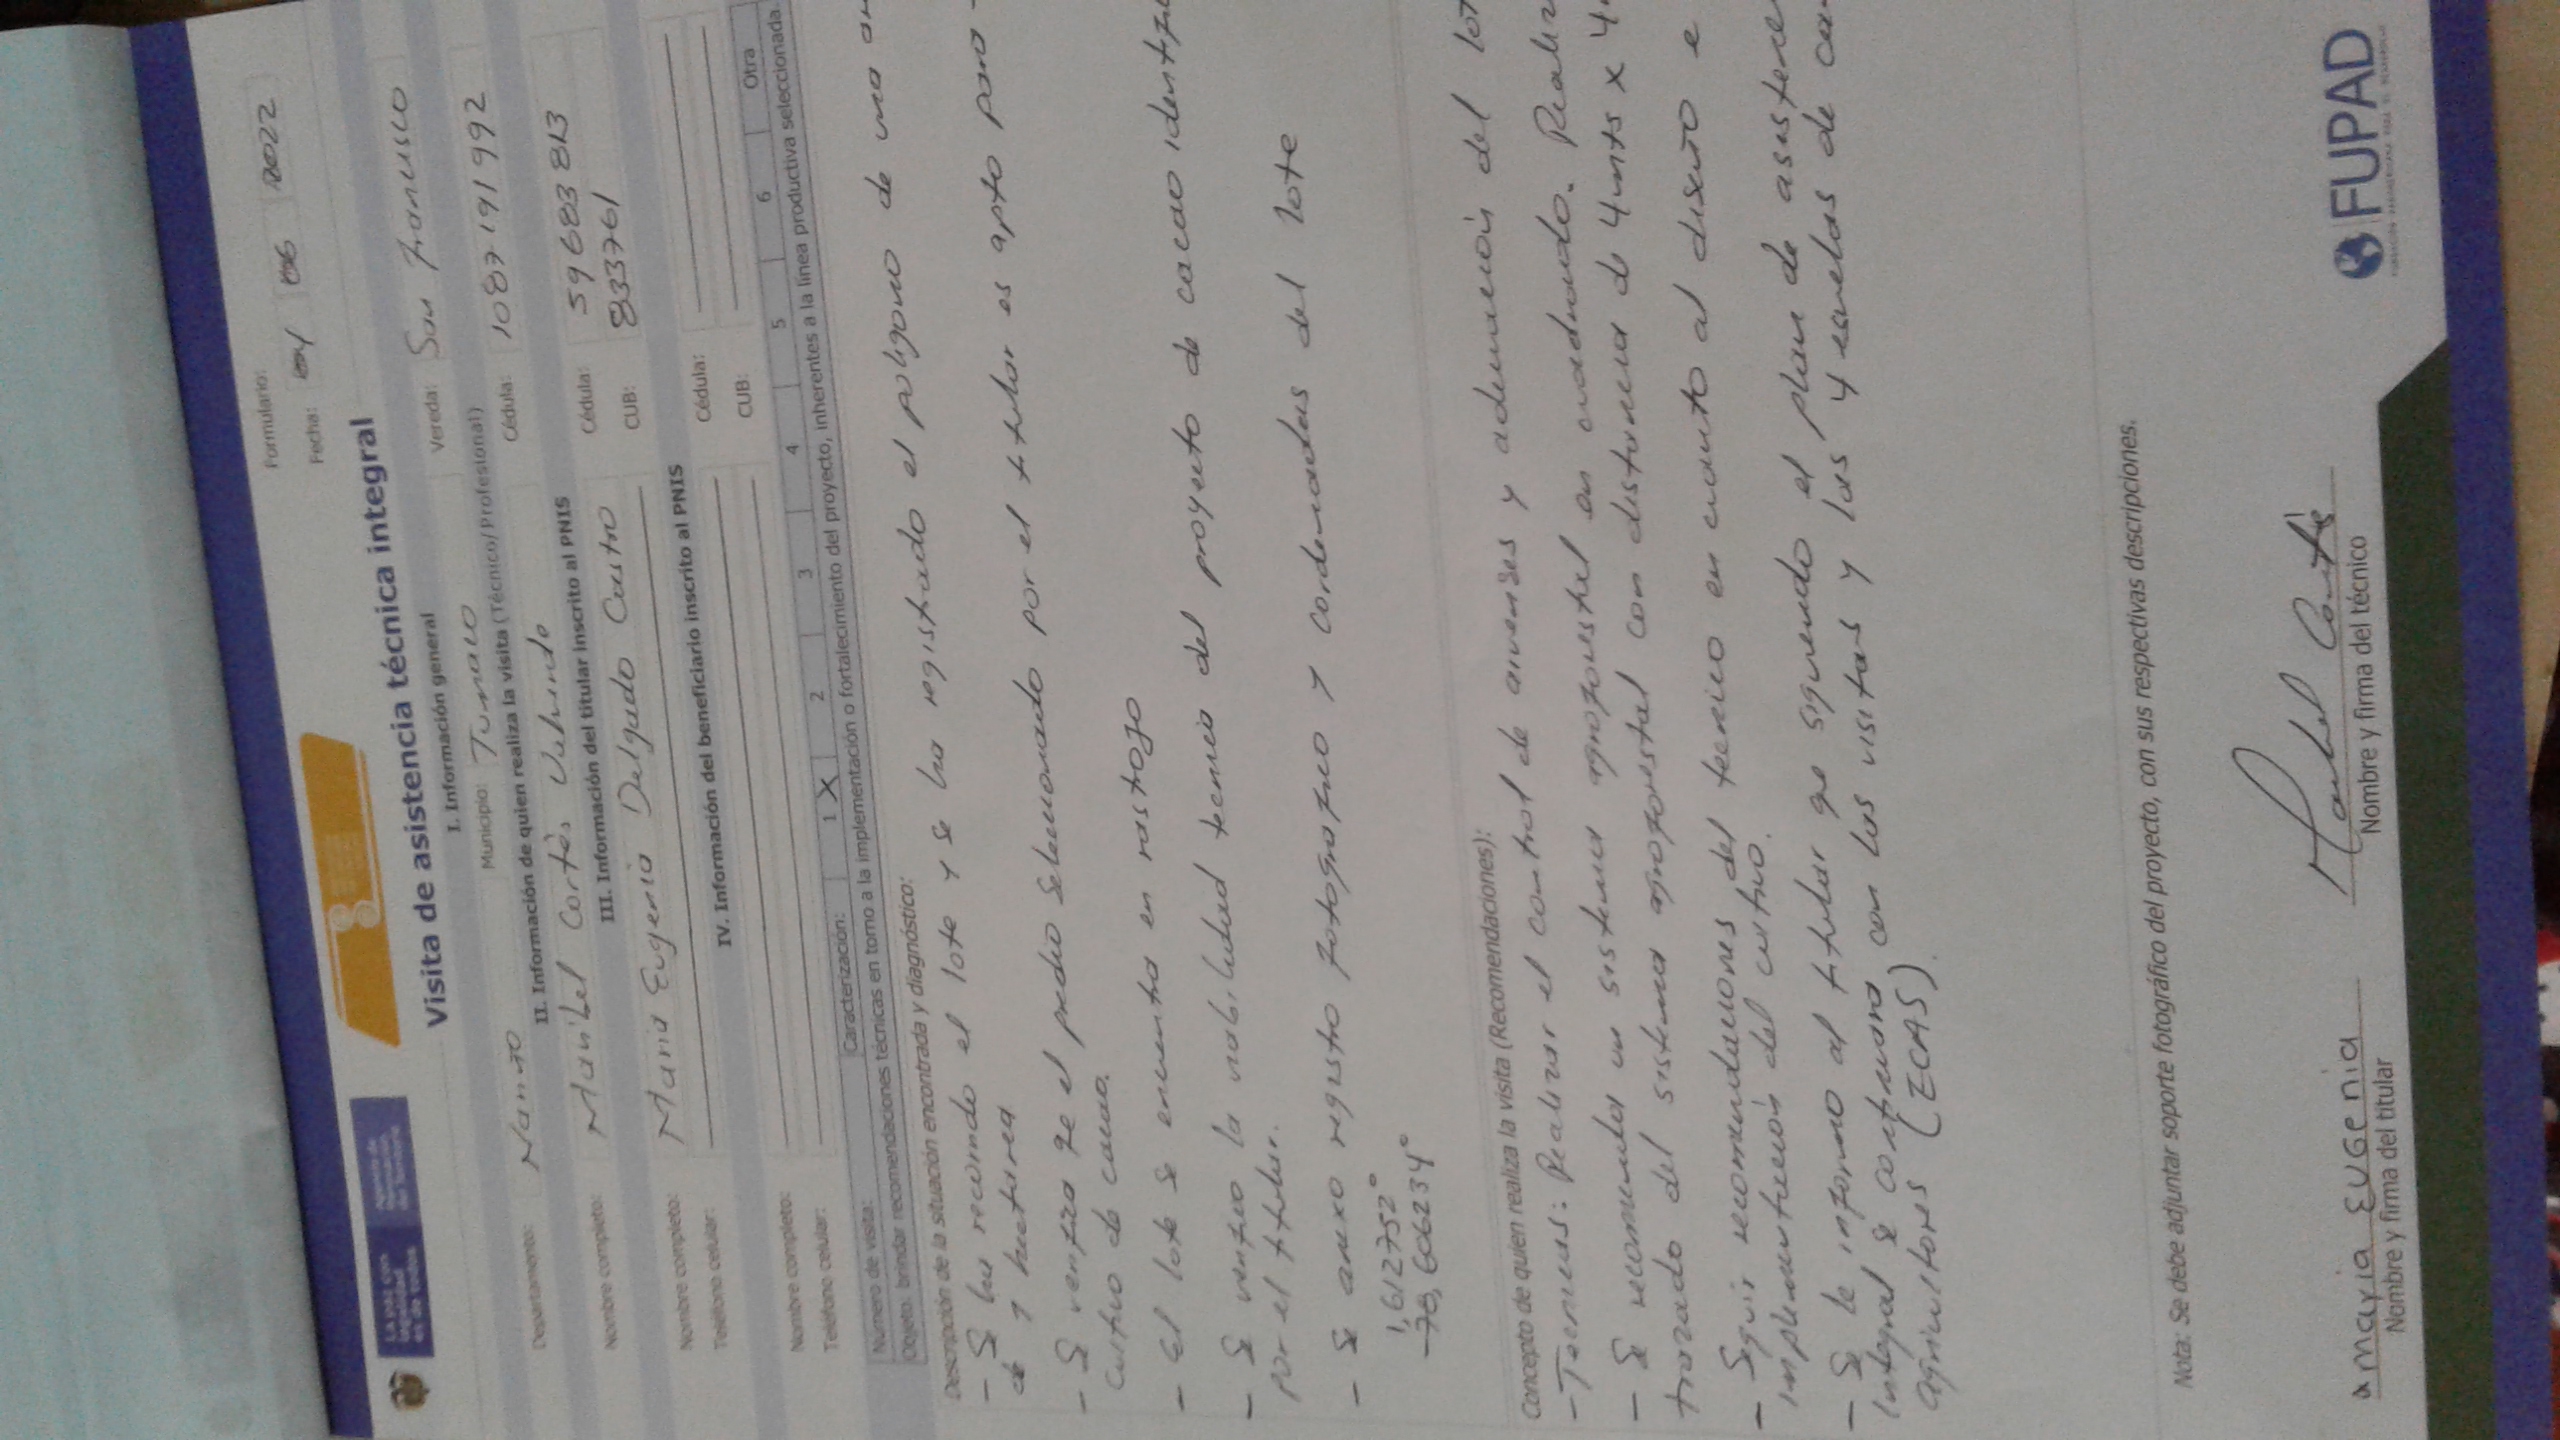 Formulario:
Fecha: 04 06 2022
Visita de asistencia técnica integral
I. Información general
Departamento: Nariño Municipio: Tumaco Vereda: San Francisco
II. Información de quien realiza la visita (Técnico/Profesional)
Nombre completo: Maribel Cortés Cédula: 1087191992
III. Información del titular inscrito al PNIS
Nombre completo: Maria Eugenia Delgado Castro Cédula: 59683813
Teléfono celular: CUB: 833761
IV. Información del beneficiario inscrito al PNIS
Nombre completo: Cédula:
Teléfono celular: CUB:
Número de visita: Caracterización: 1 X 2 3 4 5 6 Otra
Objeto: brindar recomendaciones técnicas en torno a la implementación o fortalecimiento del proyecto, inherentes a la línea productiva seleccionada.
Descripción de la situación encontrada y diagnóstico:
- Se ha recorrido el lote y se ha registrado el poligono de una
de 1 hectarea
- Se verifica qe el predio seleccionado por el titular es apto para
cultivo de cacao.
- El lote se encuentra en rastrojo
- Se verifico la viabilidad tecnica del proyecto de cacao
por el titular.
- Se anexo registro fotografico y cordenadas del lote
1,612752°
-78,606234°
Concepto de quien realiza la visita (Recomendaciones):
- Tecnicas: Realizar el control de arvenses y adecuación del
- Se recomienda un sistema agroforestal en cuadrado.
trazado del sistema agroforestal con distancia de 4mts x
- Seguir recomendaciones del tecnico en cuanto al diseño e
implementación del cultivo.
- Se le informo al titular qe siguiendo el plan de
integral se continuara con las visitas y las 4 escuelas de
agricultores (ECAS).
Nota: Se debe adjuntar soporte fotográfico del proyecto, con sus respectivas descripciones.
maria EUGenia Maribel Cortés
Nombre y firma del titular Nombre y firma del técnico
FUPAD